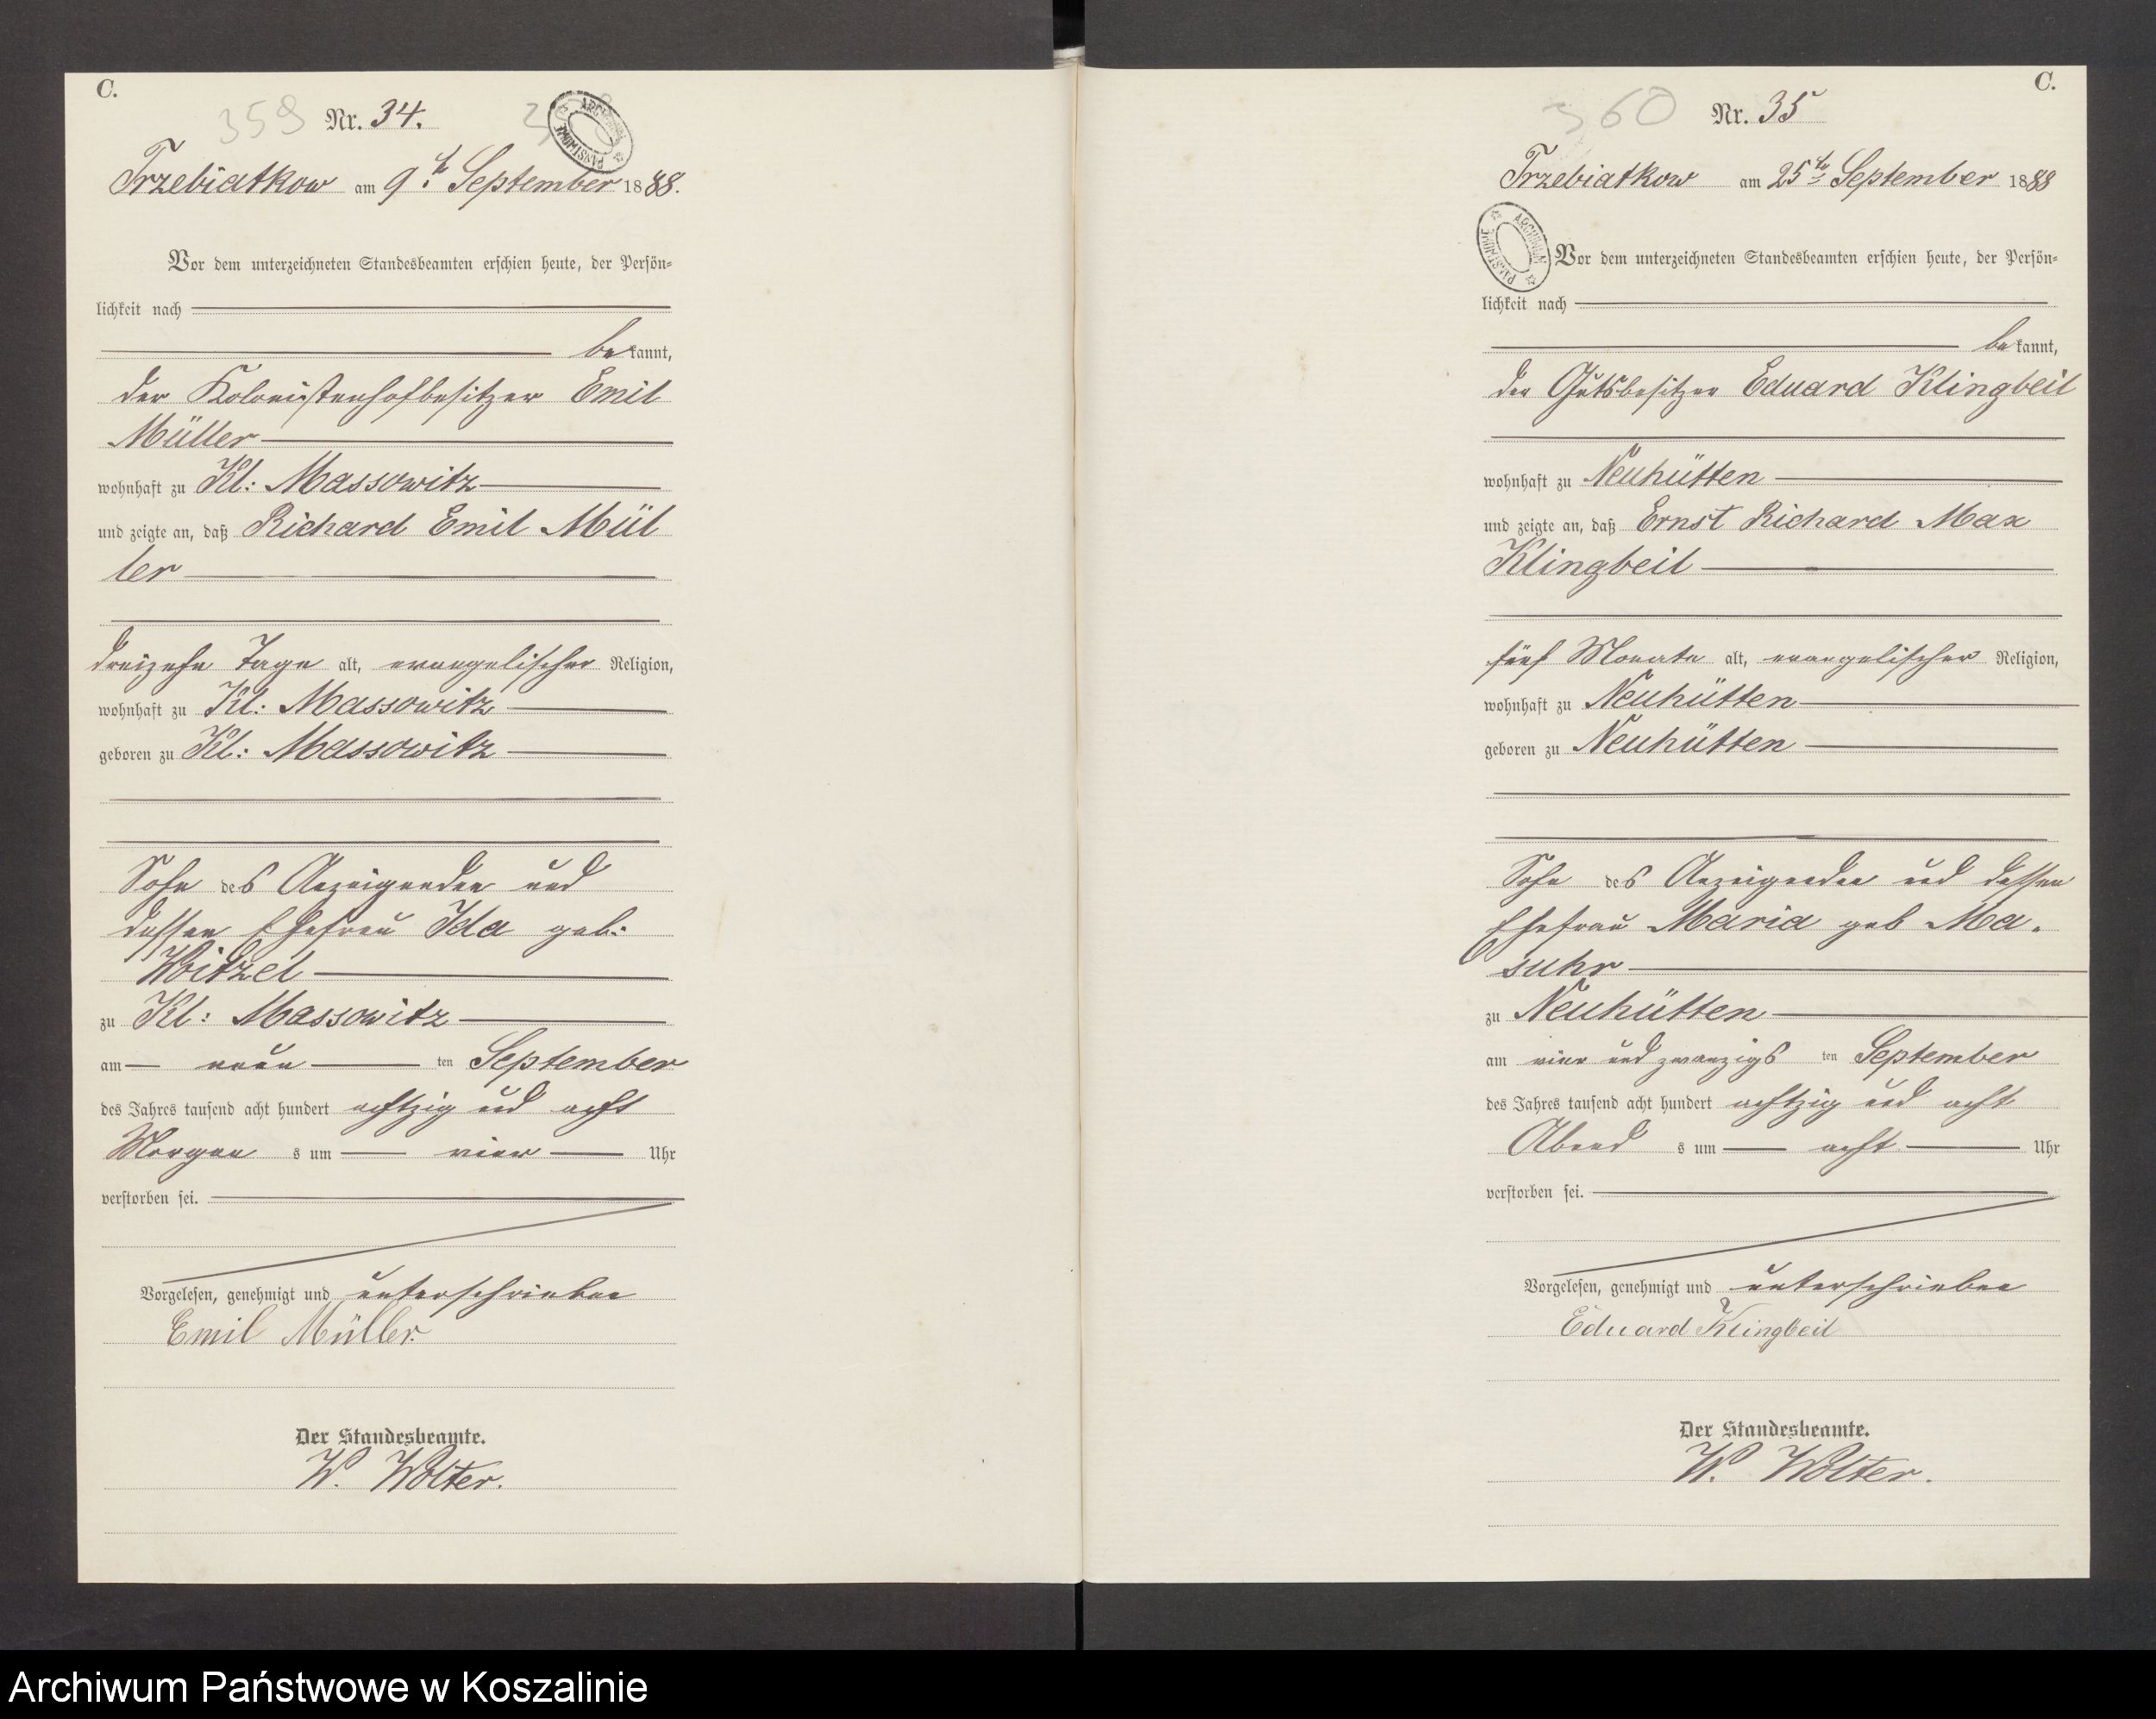 C.
359
Nr. 34.
ARCHIWUM PAŃSTWOWE
Trzebiatkow am 9ten September 1888.
Vor dem unterzeichneten Standesbeamten erschien heute, der Persön-
lichkeit nach
bekannt,
der Kolonistenhofbesitzer Emil
Müller
wohnhaft zu Kl: Massowitz
und zeigte an, daß Richard Emil Mül
ler
dreizehn Tage alt, evangelischer Religion,
wohnhaft zu Kl: Massowitz
geboren zu Kl: Massowitz
Sohn des Anzeigenden und
dessen Ehefrau Ida geb:
Witzel
zu Kl: Massowitz
am neun ten September
des Jahres tausend acht hundert achtzig und acht
Morgens um vier Uhr
verstorben sei.
Vorgelesen, genehmigt und unterschrieben
Emil Müller.
Der Standesbeamte.
W. Wolter.
C.
360
Nr. 35
Trzebiatkow am 25ten September 1888
ARCHIWUM PAŃSTWOWE
Vor dem unterzeichneten Standesbeamten erschien heute, der Persön-
lichkeit nach
bekannt,
der Gutsbesitzer Eduard Klingbeil
wohnhaft zu Neuhütten
und zeigte an, daß Ernst Richard Max
Klingbeil
fünf Monate alt, evangelischer Religion,
wohnhaft zu Neuhütten
geboren zu Neuhütten
Sohn des Anzeigenden und dessen
Ehefrau Maria geb Ma.
suhr
zu Neuhütten
am vier und zwanzigs ten September
des Jahres tausend acht hundert achtzig und acht
Abends um acht Uhr
verstorben sei.
Vorgelesen, genehmigt und unterschrieben
Eduard Klingbeil
Der Standesbeamte.
W. Wolter.
Archiwum Państwowe w Koszalinie